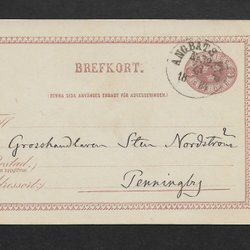 BREFKORT.
(DENNA SIDA ANVÄNDES ENDAST FÖR ADRESSERINGEN.)
ÅNGBÅTS
18
Grosshandlaren Sten Nordström
Penningby